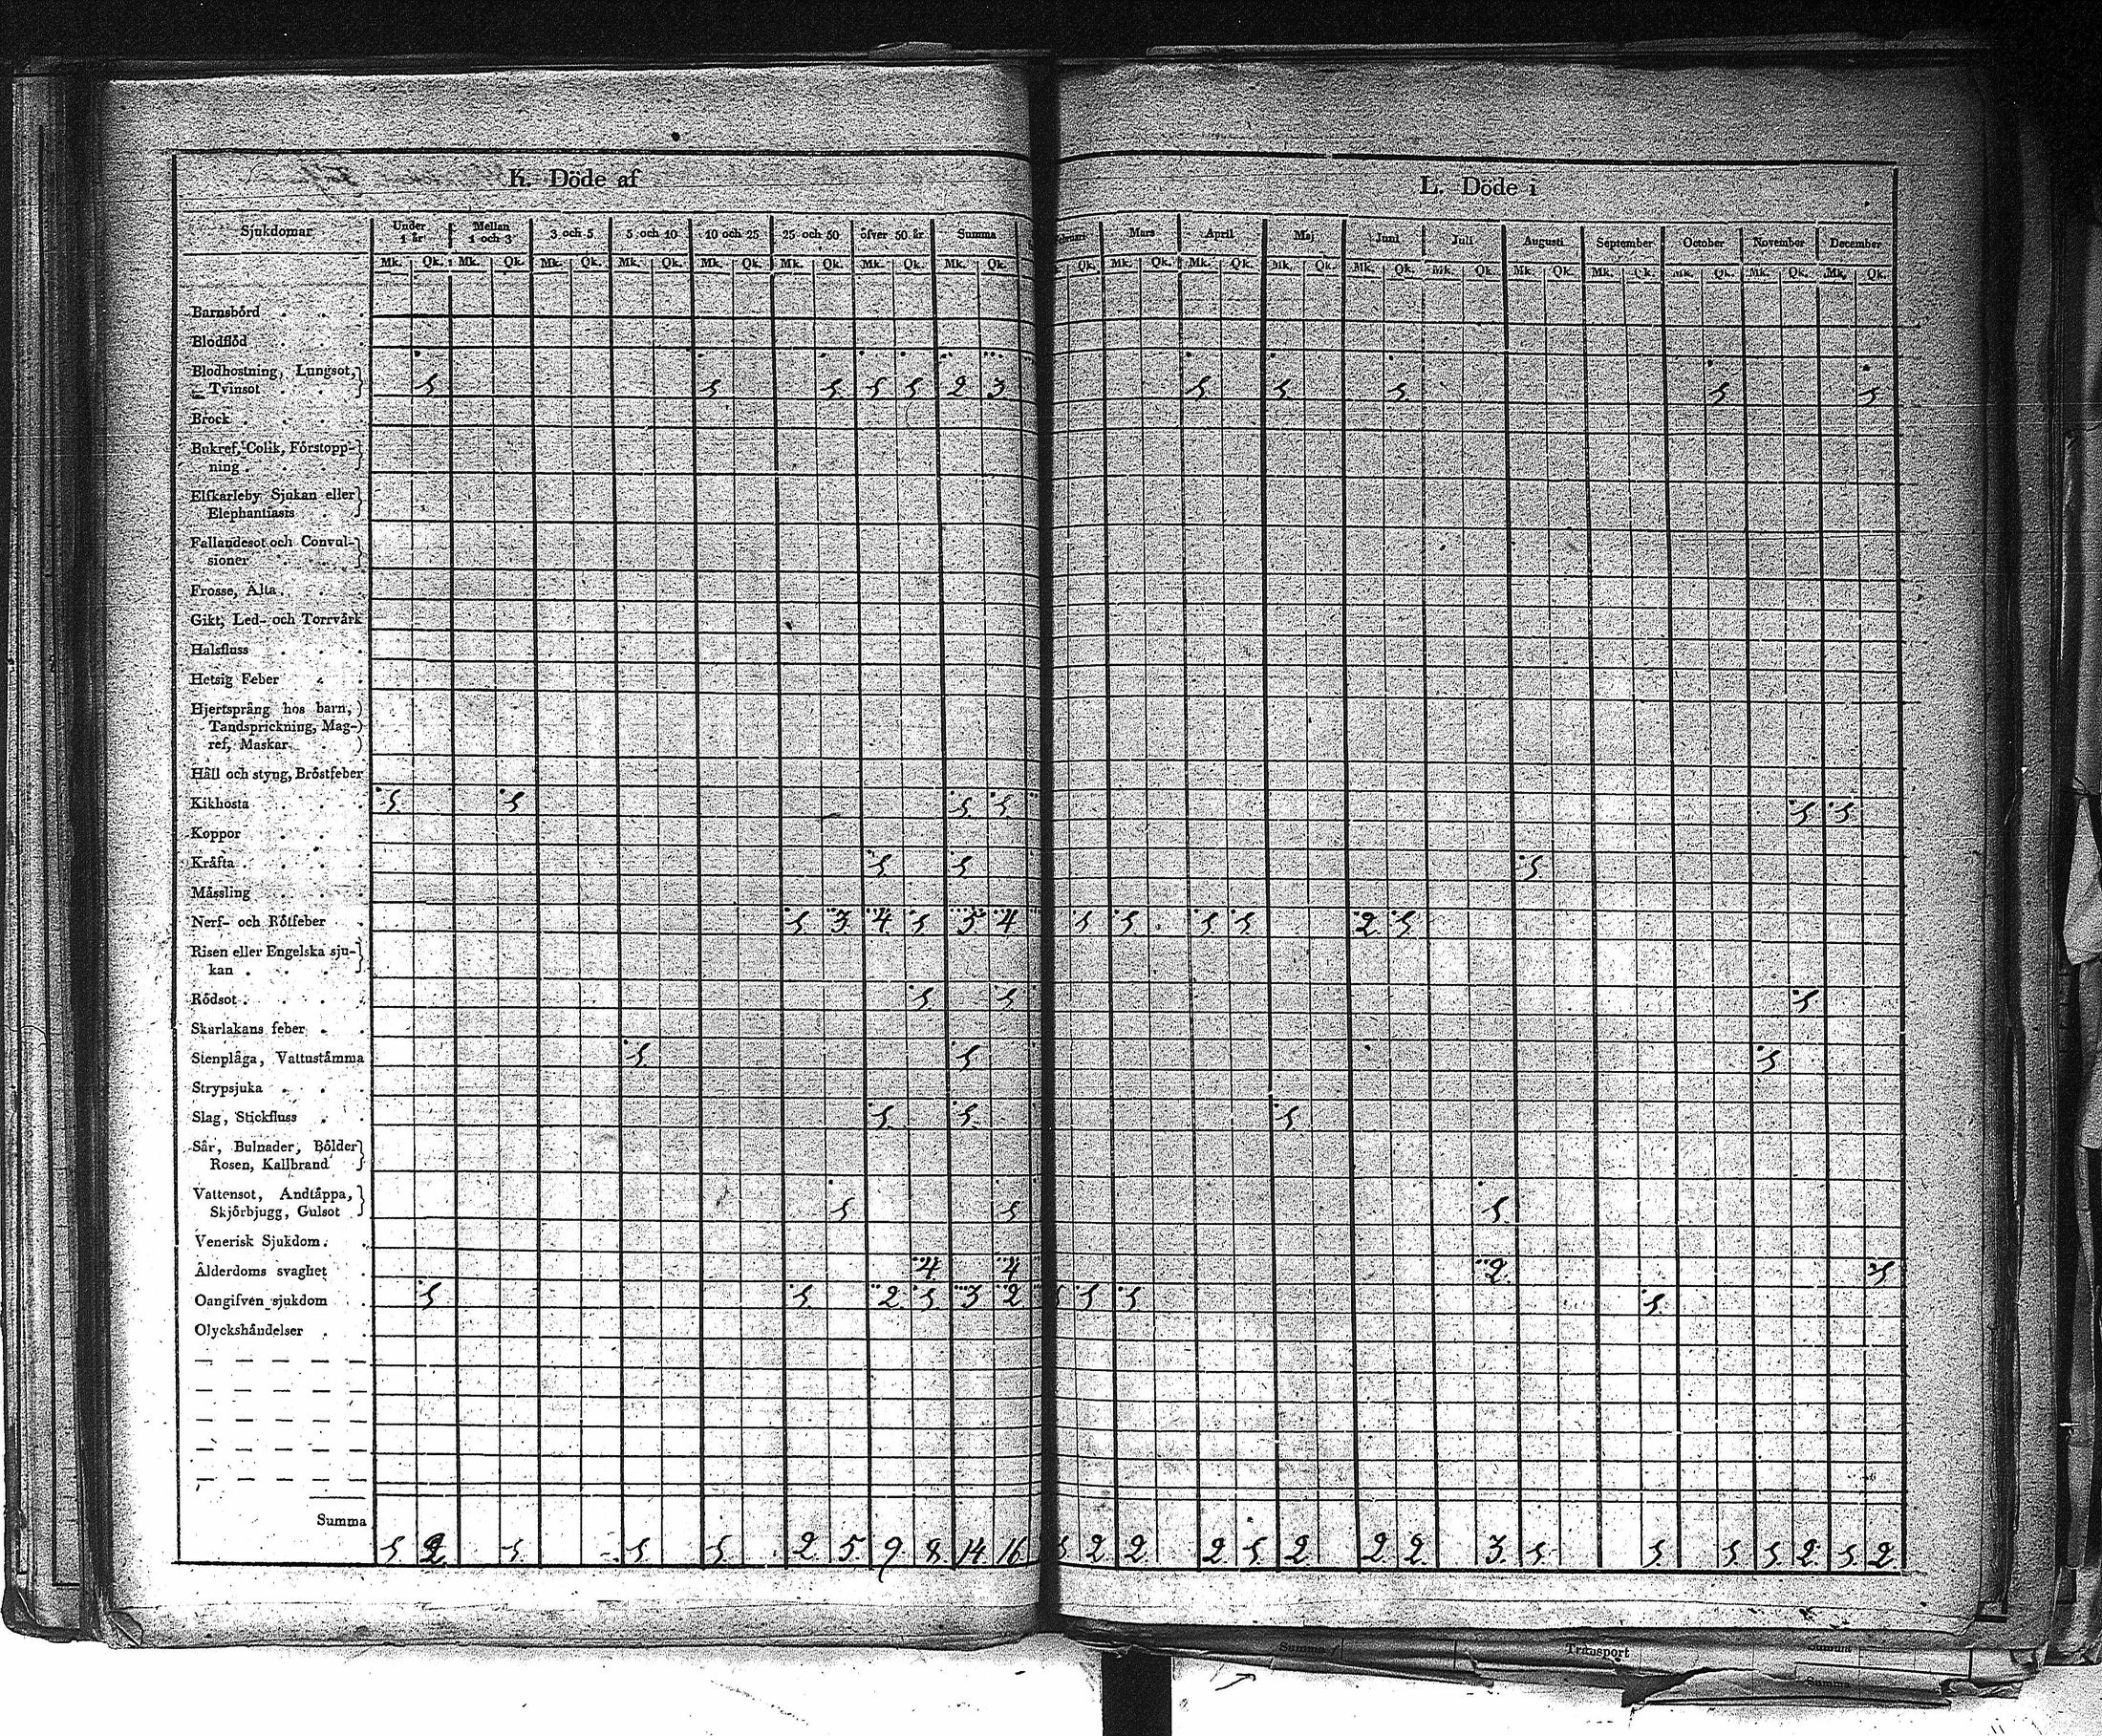 K. Döde af
L. Döde i
Sjukdomar Under 1 år Mellan 1 och 3 3 och 5 5 och 10 10 och 25 25 och 50 öfver 50 år Summa
Mars April Maj Juni Juli Augusti September October November December
Mk. Qk. Mk. Qk. Mk. Qk. Mk. Qk. Mk. Qk. Mk. Qk. Mk. Qk. Mk. Qk.
Qk. Mk. Qk. Mk. Qk. Mk. Qk. Mk. Qk. Mk. Qk. Mk. Qk. Mk. Qk. Mk. Qk. Mk. Qk. Mk. Qk.
Barnsbörd
Blodflöd
Blodhostning, Lungsot,
Tvinsot 1 1 1 1 1 2 3 1 1 1 1 1
Brock
Bukref, Colik, Förstopp-
ning
Elfkarleby Sjukan eller
Elephantiasis
Fallandesot och Convul-
sioner
Frosse, Älta
Gikt, Led- och Torrvärk
Halsfluss
Hetsig Feber
Hjertsprång hos barn,
Tandsprickning, Mag-
ref, Maskar
Håll och styng, Bröstfeber
Kikhosta 1 1 1 1 1 1
Koppor
Kräfta 1 1 1
Mässling
Nerf- och Rötfeber 1 3 4 1 5 4 1 1 1 1 2 1
Risen eller Engelska sju-
kan
Rödsot 1 1 1
Skarlakans feber
Stenplåga, Vattustämma 1 1 1
Strypsjuka
Slag, Stickfluss 1 1 1
Sår, Bulnader, Bölder
Rosen, Kallbrand
Vattensot, Andtäppa,
Skjörbjugg, Gulsot 1 1 1
Venerisk Sjukdom
Ålderdoms svaghet 4 4 2 1
Oangifven sjukdom 1 1 2 1 3 2 1 1 1 1
Olyckshändelser
Summa 1 2 1 1 1 2 5 9 8 14 16 1 2 2 2 1 2 2 2 3 1 1 1 1 2 1 2
Summa Transport Summa
Summa